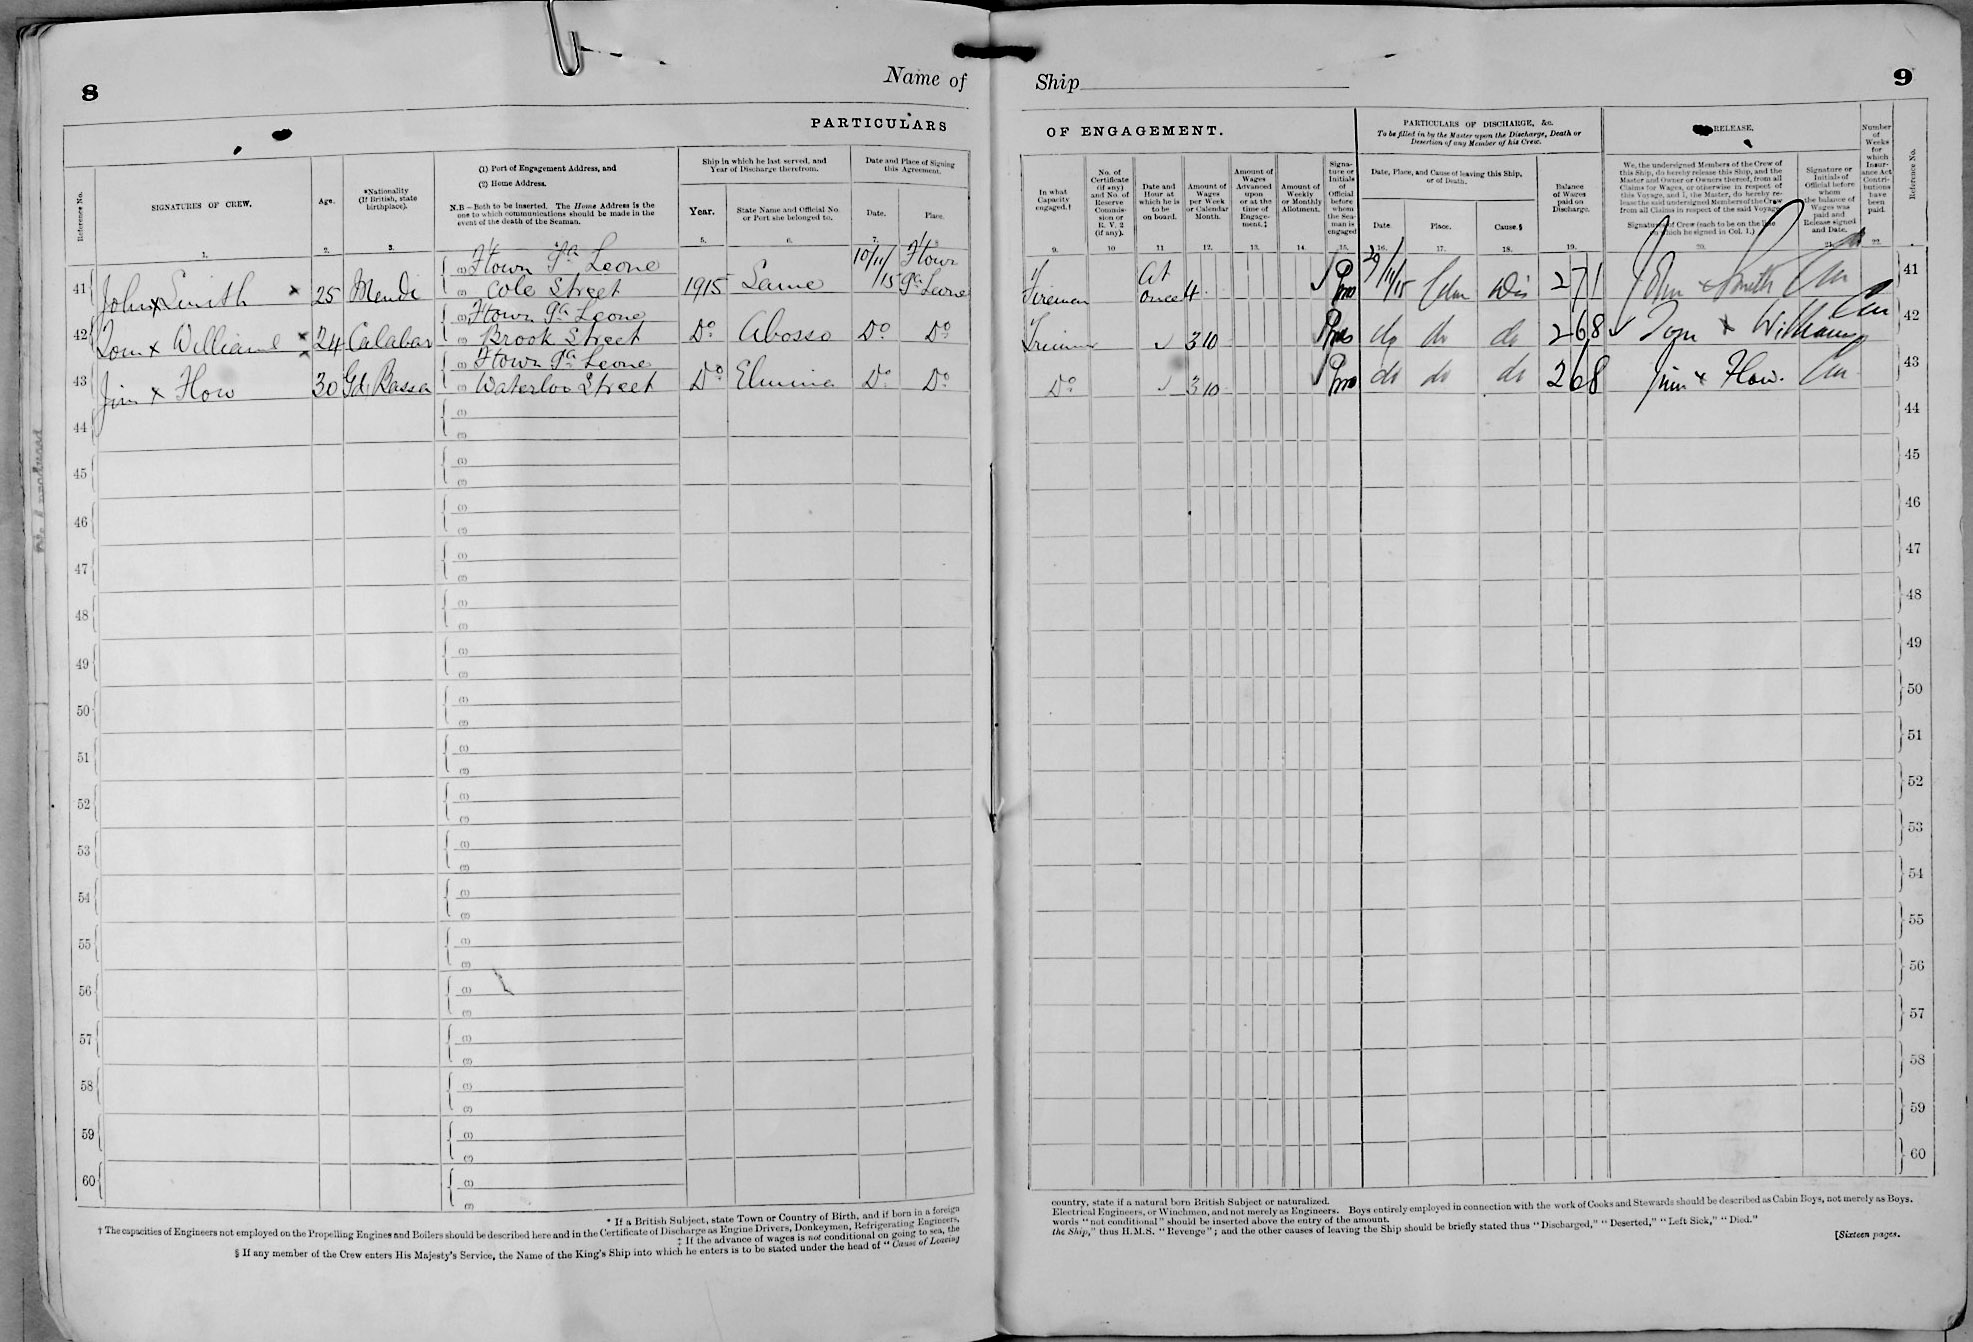 8
Name of
PARTICULARS
Reference No.
SIGNATURES OF CREW.
Age.
*Nationality
(If British, state
birthplace).
(1) Port of Engagement Address, and
(2) Home Address.
N.B—Both to be inserted. The Home Address is the
one to which communications should be made in the
event of the death of the Seaman.
Ship in which he last served, and
Year of Discharge therefrom.
Year.
State Name and Official No.
or Port she belonged to.
Date and Place of Signing
this Agreement.
Date.
Place.
1. 2. 3. 5. 6. 7.
41 John x Smith 25 Mendi
(1) Ftown Sa Leone
(2) Cole Street
1915 Same 10/11/15 Ftown Sa Leone
42 Tom x Williams 24 Calabar
(1) Ftown Sa Leone
(2) Brook Street
Do Abosso Do Do
43 Jim x Flow 30 Gd Bassa
(1) Ftown Sa Leone
(2) Waterloo Street
Do Elmina Do Do
44 (1)
(2)
45 (1)
(2)
46 (1)
(2)
47 (1)
(2)
48 (1)
(2)
49 (1)
(2)
50 (1)
(2)
51 (1)
(2)
52 (1)
(2)
53 (1)
(2)
54 (1)
(2)
55 (1)
(2)
56 (1)
(2)
57 (1)
(2)
58 (1)
(2)
59 (1)
(2)
60 (1)
(2)
* If a British Subject, state Town or Country of Birth, and if born in a foreign
† The capacities of Engineers not employed on the Propelling Engines and Boilers should be described here and in the Certificate of Discharge as Engine Drivers, Donkeymen, Refrigerating Engineers,
‡ If the advance of wages is not conditional on going to sea, the
§ If any member of the Crew enters His Majesty's Service, the Name of the King's Ship into which he enters is to be stated under the head of "Cause of Leaving
Ship
9
OF ENGAGEMENT.
PARTICULARS OF DISCHARGE, &c.
To be filled in by the Master upon the Discharge, Death or
Desertion of any Member of his Crew.
RELEASE.
In what
Capacity
engaged.†
No. of
Certificate
(if any)
and No. of
Reserve
Commis-
sion or
R. V. 2
(if any).
Date and
Hour at
which he is
to be
on board.
Amount of
Wages
per Week
or Calendar
Month.
Amount of
Wages
Advanced
upon
or at the
time of
Engage-
ment.‡
Amount of
Weekly
or Monthly
Allotment.
Signa-
ture or
Initials
of
Official
before
whom
the Sea-
man is
engaged
Date, Place, and Cause of leaving this Ship,
or of Death.
Date.
Place.
Cause.§
Balance
of Wages
paid on
Discharge.
We, the undersigned Members of the Crew of
this Ship, do hereby release this Ship, and the
Master and Owner or Owners thereof, from all
Claims for Wages, or otherwise in respect of
this Voyage, and I, the Master, do hereby re-
lease the said undersigned Members of the Crew
from all Claims in respect of the said Voyage.
Signatures of Crew (each to be on the line
on which he signed in Col. 1.)
Signature or
Initials of
Official before
whom
the balance of
Wages was
paid and
Release signed
and Date.
Number
of
Weeks
for
which
Insur-
ance Act
Contri-
butions
have
been
paid.
Reference No.
9. 10 11 12. 13. 14. 15. 16. 17. 18. 19. 20. 21. 22.
Fireman At once 4 29/11/15 Dis 2 7 1 John x Smith 41
Trimmer 3 10 do do do 2 6 8 Tom x Williams 42
Do 3 10 do do do 2 6 8 Jim x Flow. 43
44
45
46
47
48
49
50
51
52
53
54
55
56
57
58
59
60
country, state if a natural born British Subject or naturalized.
Electrical Engineers, or Winchmen, and not merely as Engineers. Boys entirely employed in connection with the work of Cooks and Stewards should be described as Cabin Boys, not merely as Boys.
words "not conditional" should be inserted above the entry of the amount.
the Ship," thus H.M.S. "Revenge"; and the other causes of leaving the Ship should be briefly stated thus "Discharged," "Deserted," "Left Sick," "Died."
[Sixteen pages.